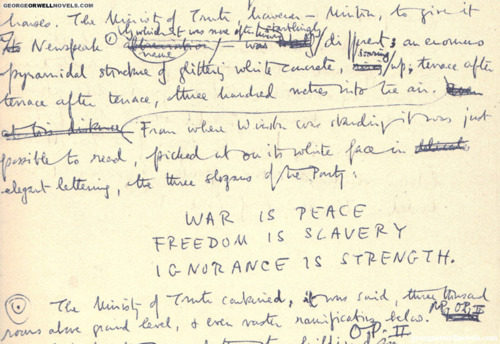 GEORGEORWELLNOVELS.COM
houses. The Ministry of Truth, however — Minitru, to give it
its Newspeak name was startlingly different; an enormous
pyramidal structure of glittering white concrete, soaring up, terrace after
terrace after terrace, three hundred metres into the air.
at this distance From where Winston was standing it was just
possible to read, picked out on its white face in
elegant lettering, the three slogans of the Party:
WAR IS PEACE
FREEDOM IS SLAVERY
IGNORANCE IS STRENGTH.
The Ministry of Truth contained, it was said, three thousand
rooms above ground level, & even vaster ramifications below.